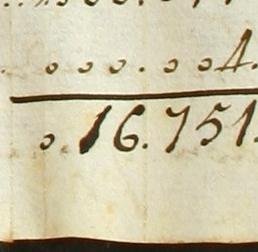 o o o . o o 4.
o.16.751.